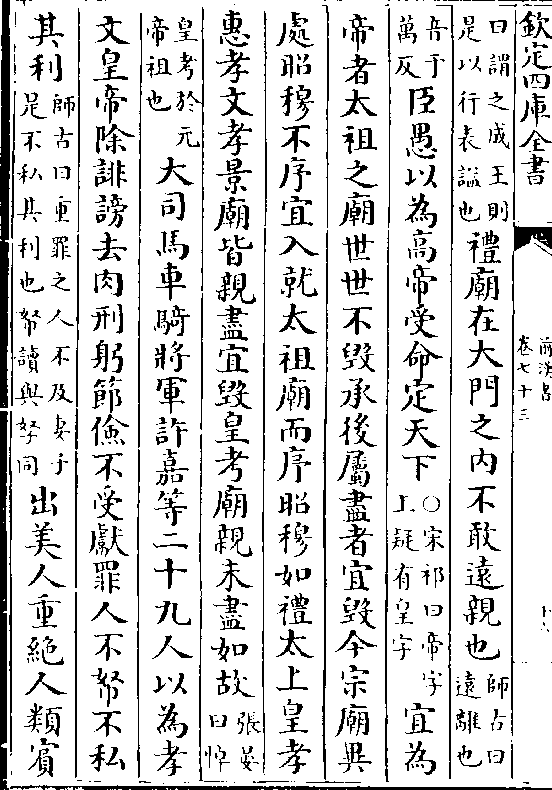 欽定四庫全書
前漢書
卷七十三
曰謂之成王則
是以行表諡也
禮廟在大門之內不敢遠親也
師古曰
遠離也
音于
萬反
臣愚以為高帝受命定天下
○宋祁曰帝字
上疑有皇字
宜為
帝者太祖之廟世世不毀承後屬盡者宜毀今宗廟異
處昭穆不序宜入就太祖廟而序昭穆如禮太上皇孝
惠孝文孝景廟皆親盡宜毀皇考廟親未盡如故
張晏
曰悼
皇考於元
帝祖也
大司馬車騎將軍許嘉等二十九人以為孝
文皇帝除誹謗去肉刑躬節儉不受獻罪人不帑不私
其利
師古曰重罪之人不及妻子
是不私其利也帑讀與孥同
出美人重絕人類賓